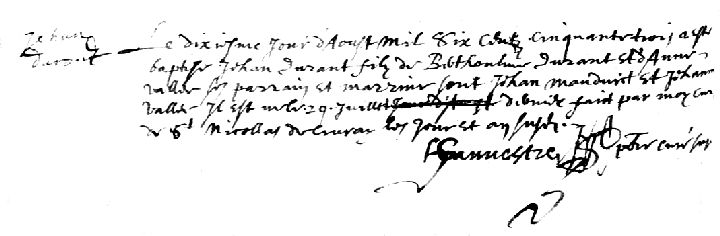 Jehan
durant
Le dixiesme Jour d'Aoust Mil Six Centz Cinquantetrois a este
baptise Jehan durant filz de Berthommé durant et d'Anne
vallee ses parrain et marrine sont Jehan mauduict et Jehane
vallee Il est ne le 29 Juillet dernier faict par moy cure
de St Nicollas de les Jour et an susd.
pbre cure susd